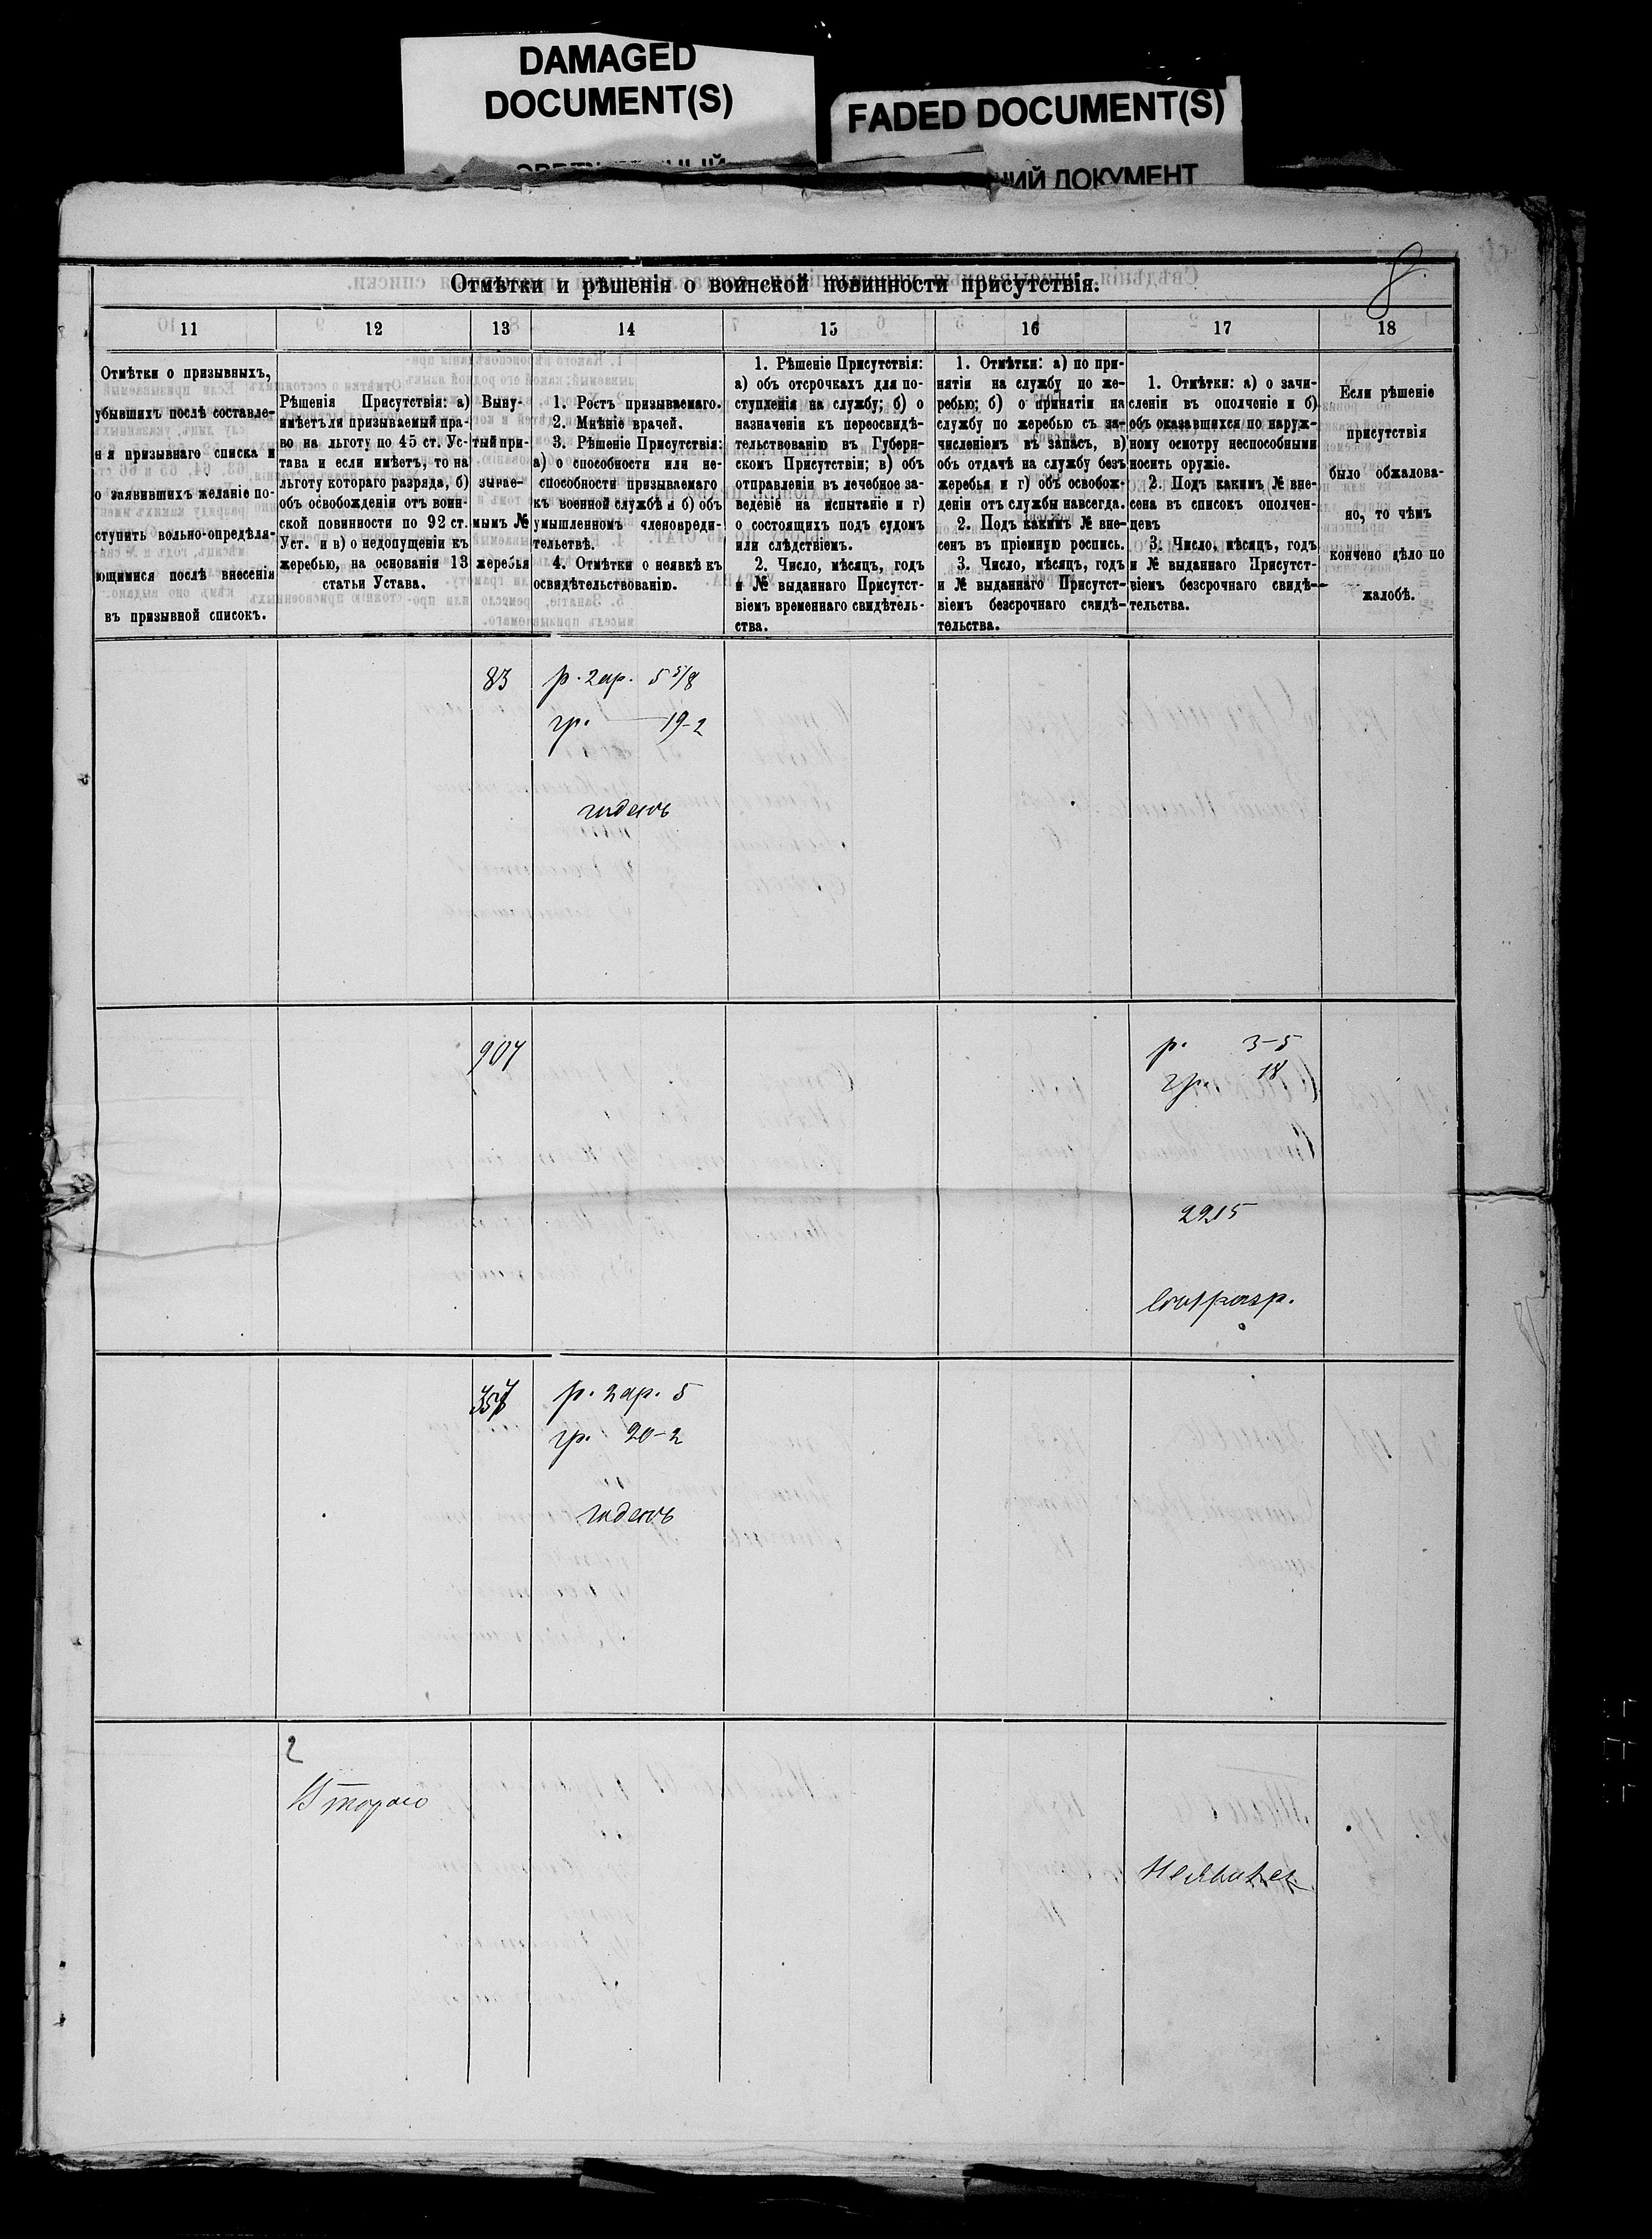 DAMAGED
DOCUMENT(S)
FADED DOCUMENT(S)
ДОКУМЕНТ
8
Отмѣтки и рѣшенія о воинской повинности присутствія.
11
12
13
14
15
16
17
18
Отмѣтки о призывныхъ,
убывшихъ послѣ составле-
н я призывнаго списка и
о заявившихъ желаніе по-
ступить вольно-опредѣля-
ющимися послѣ внесенія
въ призывной списокъ.
Рѣшенія Присутствія: а)
имѣетъ ли призываемый пра-
во на льготу по 45 ст. Ус-
тава и если имѣетъ, то на
льготу котораго разряда, б)
объ освобожденіи отъ воин-
ской повинности по 92 ст.
Уст. и в) о недопущеніи къ
жеребью, на основаніи 13
статьи Устава.
Выну-
тый при-
зывае-
мымъ №
жеребья
1. Ростъ призываемаго.
2. Мнѣніе врачей.
3. Рѣшеніе Присутствія:
а) о способности или не-
способности призываемаго
къ военной службѣ и б) объ
умышленномъ членовреди-
тельствѣ.
4. Отмѣтки о неявкѣ къ
освидѣтельствованію.
1. Рѣшеніе Присутствія:
а) объ отсрочкахъ для по-
ступленія на службу; б) о
назначеніи къ переосвидѣ-
тельствованію въ Губерн-
скомъ Присутствіи; в) объ
отправленіи въ лечебное за-
веденіе на испытаніе и г)
о состоящихъ подъ судомъ
или слѣдствіемъ.
2. Число, мѣсяцъ, годъ
и № выданнаго Присутст-
віемъ временнаго свидѣтель-
ства.
1. Отмѣтки: а) по при-
нятіи на службу по же-
ребью; б) о принятіи на
службу по жеребью съ за-
численіемъ въ запасъ, в)
объ отдачѣ на службу безъ
жеребья и г) объ освобож-
деніи отъ службы навсегда.
2. Подъ какимъ № вне-
сенъ въ пріемную роспись.
3. Число, мѣсяцъ, годъ
и № выданнаго Присутст-
віемъ безсрочнаго свидѣ-
тельства.
1. Отмѣтки: а) о зачи-
сленіи въ ополченіе и б)
объ оказавшихся по наруж-
ному осмотру неспособными
носить оружіе.
2. Подъ какимъ № вне-
сена въ списокъ ополчен-
цевъ
3. Число, мѣсяцъ, годъ
и № выданнаго Присутст-
віемъ безсрочнаго свидѣ-
тельства.
Если рѣшеніе
присутствія
было обжалова-
но, то чѣмъ
кончено дѣло по
жалобѣ.
83
р. 2ар. 5 5/8
гр. 19-2
годенъ
907
р. 3-5
гр. 18
2215
357
р. 2 ар. 5
гр. 20-2
годенъ
2
Втораго
Неявился